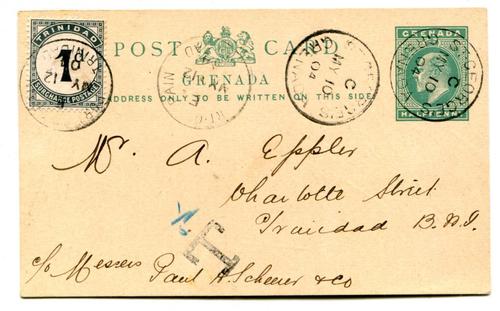 TRINIDAD
1
SURCHARGE POSTAGE
POST CARD
GRENADA
ADDRESS ONLY TO BE WRITTEN ON THIS SIDE
GRENADA
HALFPENNY
ST GEORGE'S
C
MY 10
04
GRENADA
ST GEORGE'S
C
MY 10
04
GRENADA
Mr. A. Eppler
Charlotte Street
Trinidad B.W.I.
T
c/o Messrs Paul H. Scheerer & co